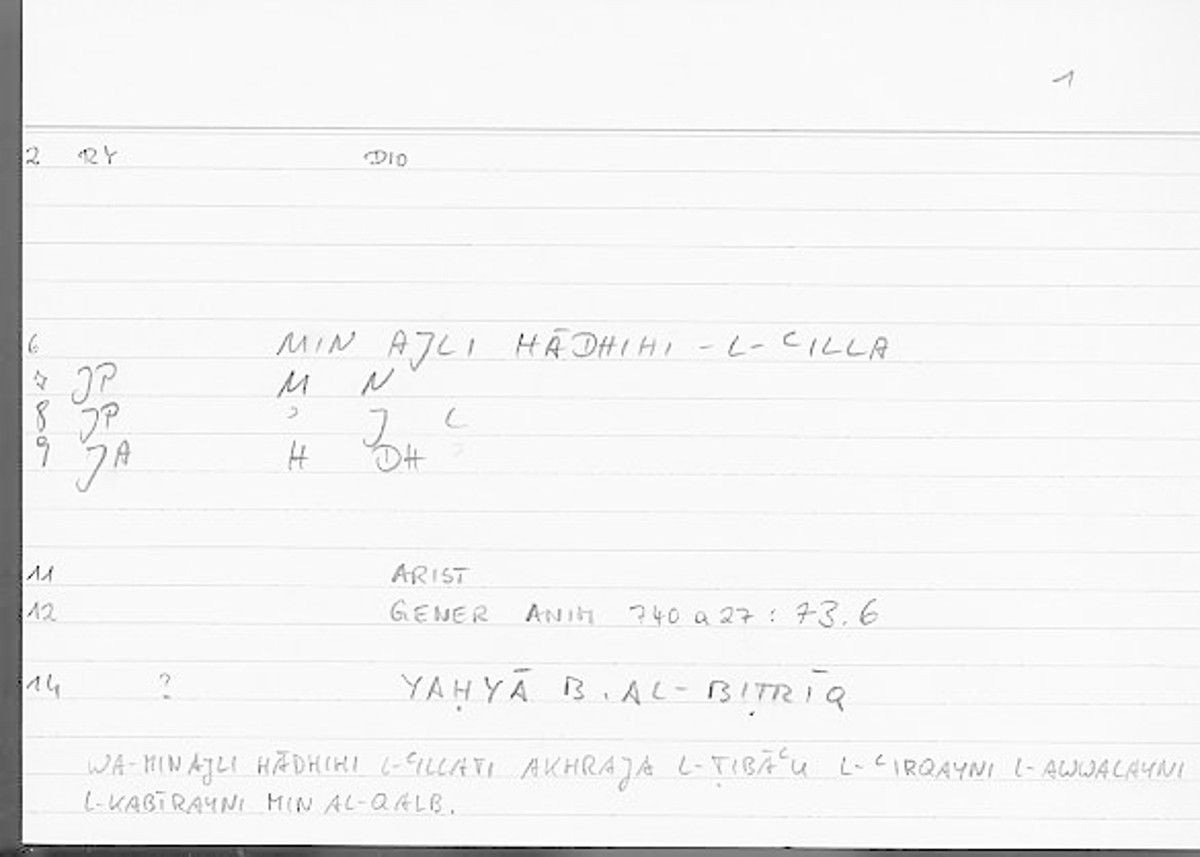 1
2 RY DIO
6 MIN AJLI HĀDHIHI-L-ʿILLA
7 JP M N
8 JP ʾ J L
9 JA H DH ʾ
11 ARIST
12 GENER ANIM 740 a 27 : 73.6
14 ? YAḤYĀ B. AL-BIṬRĪQ
WA-MIN AJLI HĀDHIHI L-ʿILLATI AKHRAJA L-ṬIBĀʿU L-ʿIRQAYNI L-AWWALAYNI
L-KABĪRAYNI MIN AL-QALB.